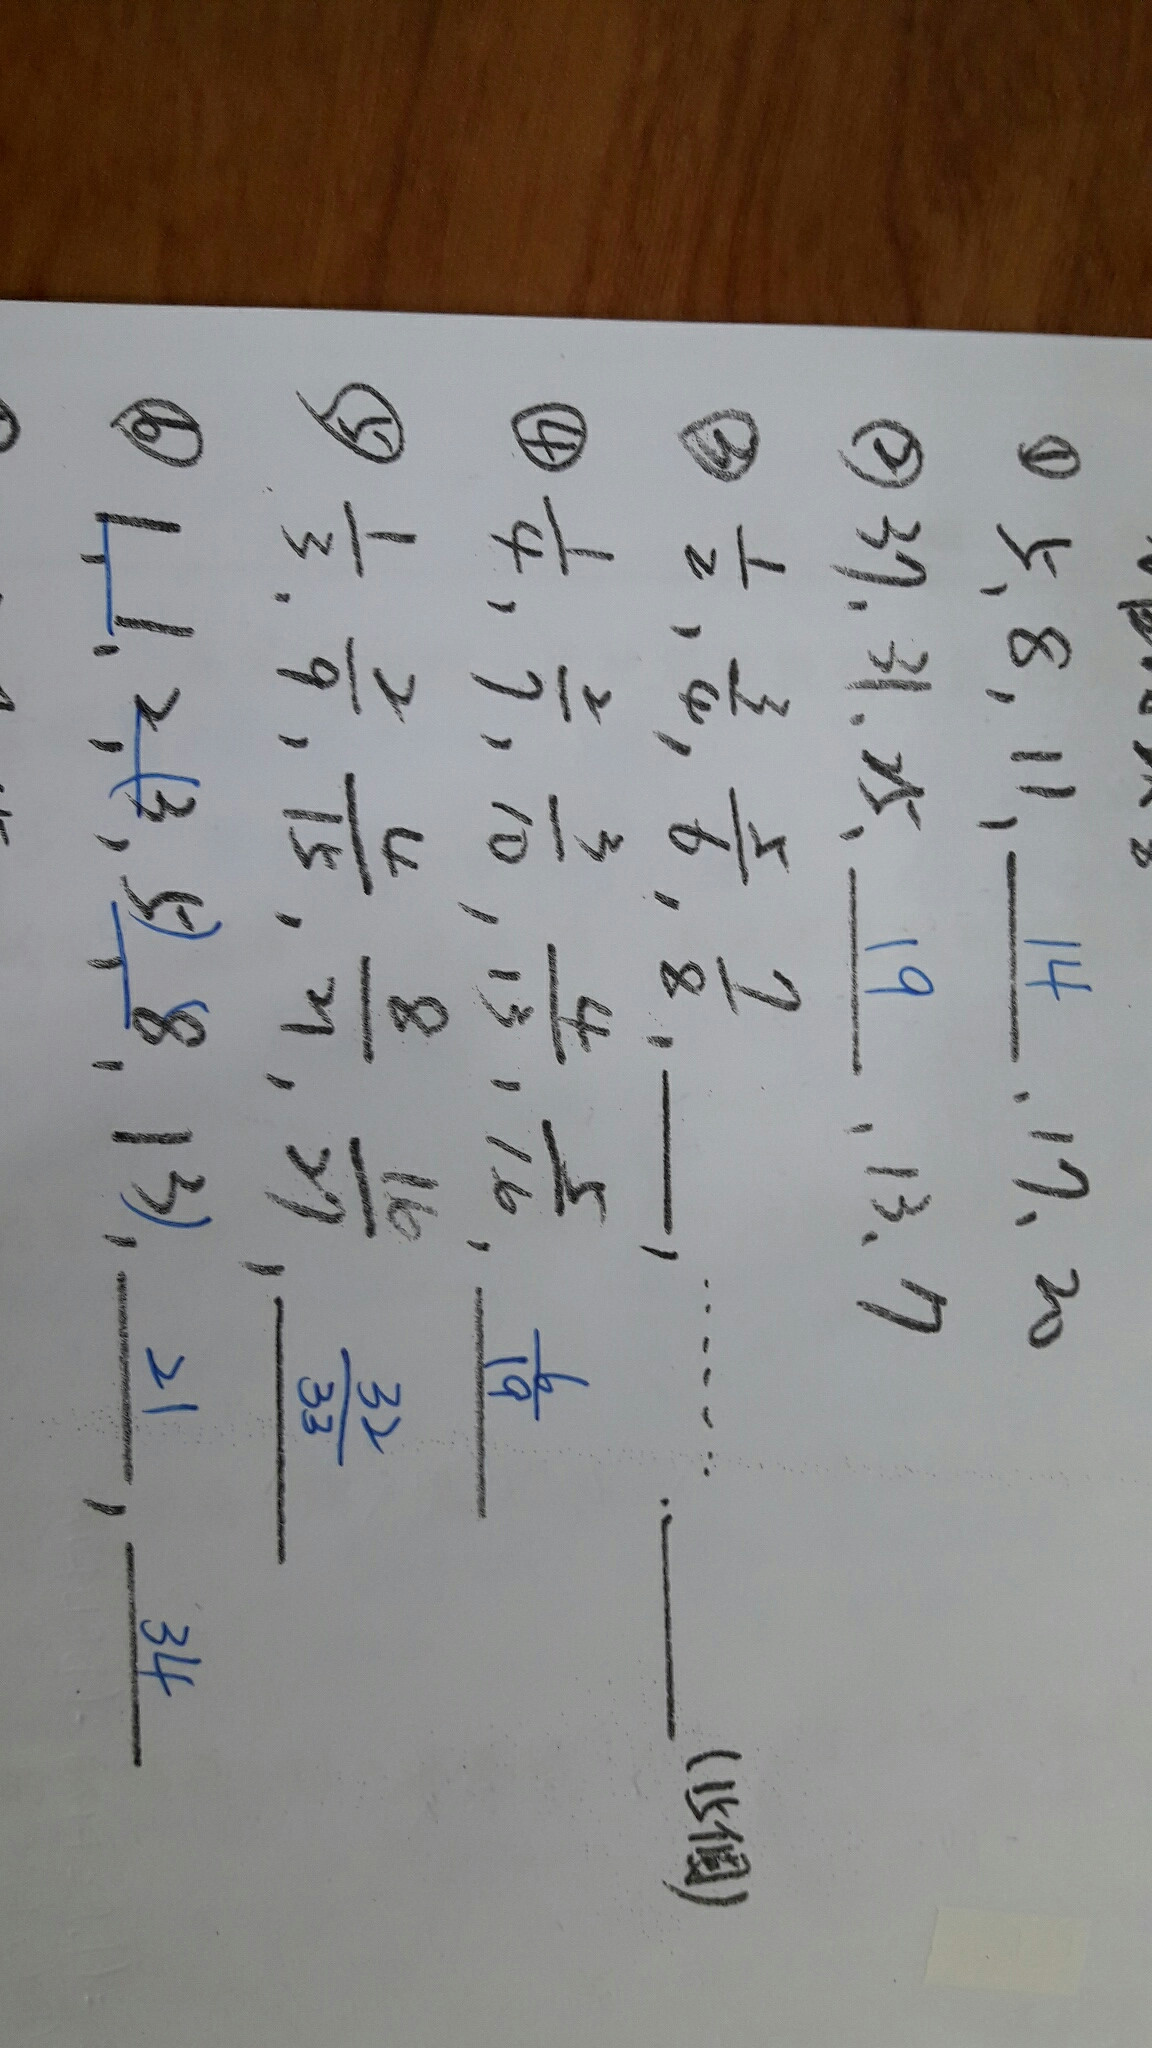 ① 5, 8, 11, 14, 17, 20
② 37, 31, 25, 19, 13, 7
③ 1/2, 3/4, 5/6, 7/8, ____, ......, ____ (15個)
④ 1/4, 2/7, 3/10, 4/13, 5/16, 6/19
⑤ 1/3, 2/9, 4/15, 8/21, 16/27, 32/33
⑥ 1, 1, 2, 3, 5, 8, 13, 21, 34